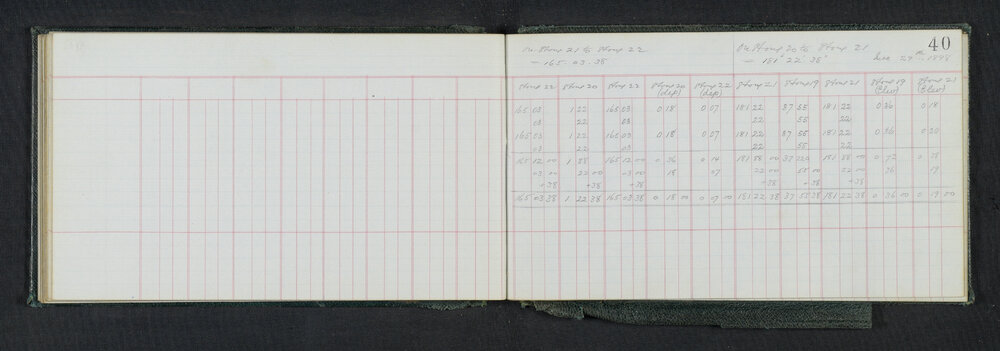 40
Stone 21 to Stone 22
On Stone 20 to Stone 21
- 165. 03. 38
- 181° 22' 38"
Dec 29th 1898
Stone 22 Stone 20 Stone 22 Stone 20 (dep) Stone 22 (dep) Stone 21 Stone 19 Stone 21 Stone 19 (Elev) Stone 21 (Elev)
165 03 1 22 165 03 0 18 0 07 181 22 37 55 181 22 0 36 0 18
03 22 03 22 55 22
165 03 1 22 165 03 0 18 0 07 181 22 37 55 181 22 0 36 0 20
03 22 03 22 55 22
165 12 00 1 88 165 12 00 0 36 0 14 181 88 00 37 220 181 88 00 0 72 0 38
03 00 22 00 03 00 18 07 22 00 55 00 22 00 36 19
+38 +38 +38 +38 +38 +38
165 03 38 1 22 38 165 03 38 0 18 00 0 07 00 181 22 38 37 55 38 181 22 38 0 36 00 0 19 00